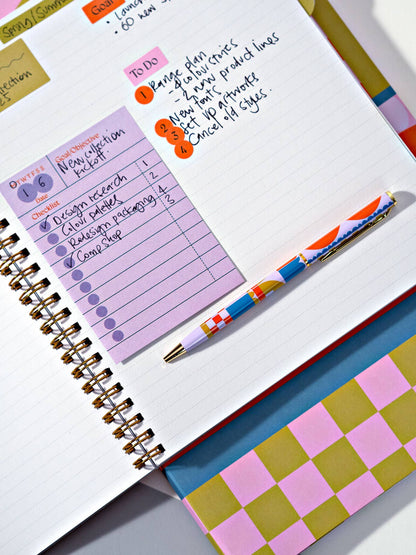 Spring/Summer
Goal
• Launch
• 60 new s
ollection
To Do
1 Range plan
- 4 colour stories
- 3 new product lines
2 New fonts
3 Set up artworks
4 Cancel old styles.
M T W T F S S
Goal/Objective
New collection
kickoff.
1 6
Date
Checklist
Design research 1
Colour palettes 2
Redesign packaging 4
Comp shop 3